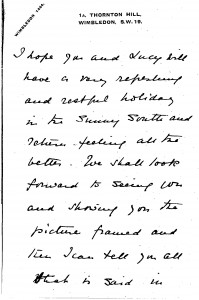 WIMBLEDON
1A THORNTON HILL,
WIMBLEDON. S.W. 19.
I hope you and Lucy will
have a very refreshing
and restful holiday
in the Sunny South and
return feeling all the
better. We shall look
forward to seeing you
and showing you the
picture framed and
then I can tell you all
that is said in